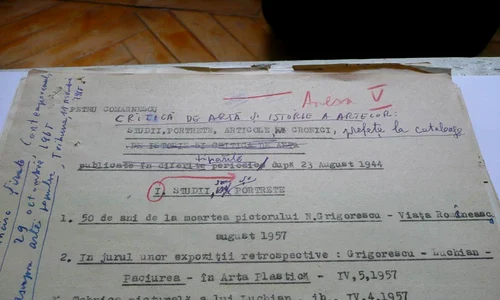 PETRU COMARNESCU
Anexa V
CRITICĂ DE ARTĂ ȘI ISTORIE A ARTELOR:
STUDII, PORTRETE, ARTICOLE CRONICI, prefețe la cataloage
DE ISTORIE SI CRITICA DE ARTA
tipărite
publicate in diferite periodice după 23 August 1944
I. STUDII, PORTRETE
1. 50 de ani de la moartea pictorului N.Grigorescu - Viața Românească
august 1957
2. In jurul unor expoziții retrospective : Grigorescu - Luchian -
Paciurea - în Arta Plastică - IV,5,1957
Tehnica picturală a lui Luchian - ib - IV,4,1957
Contemporanul,
29 octombrie 1965
Tribuna